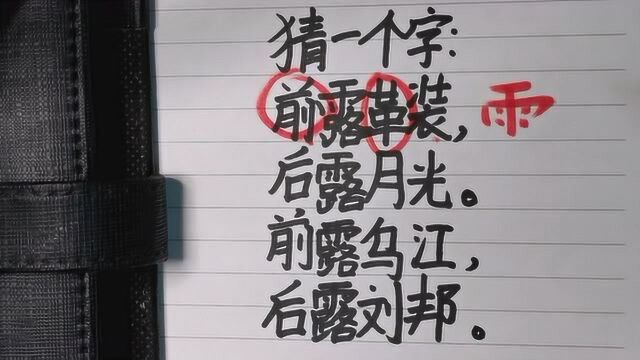 猜一个字:
前露革装，雨
后露月光。
前露乌江，
后露刘邦。